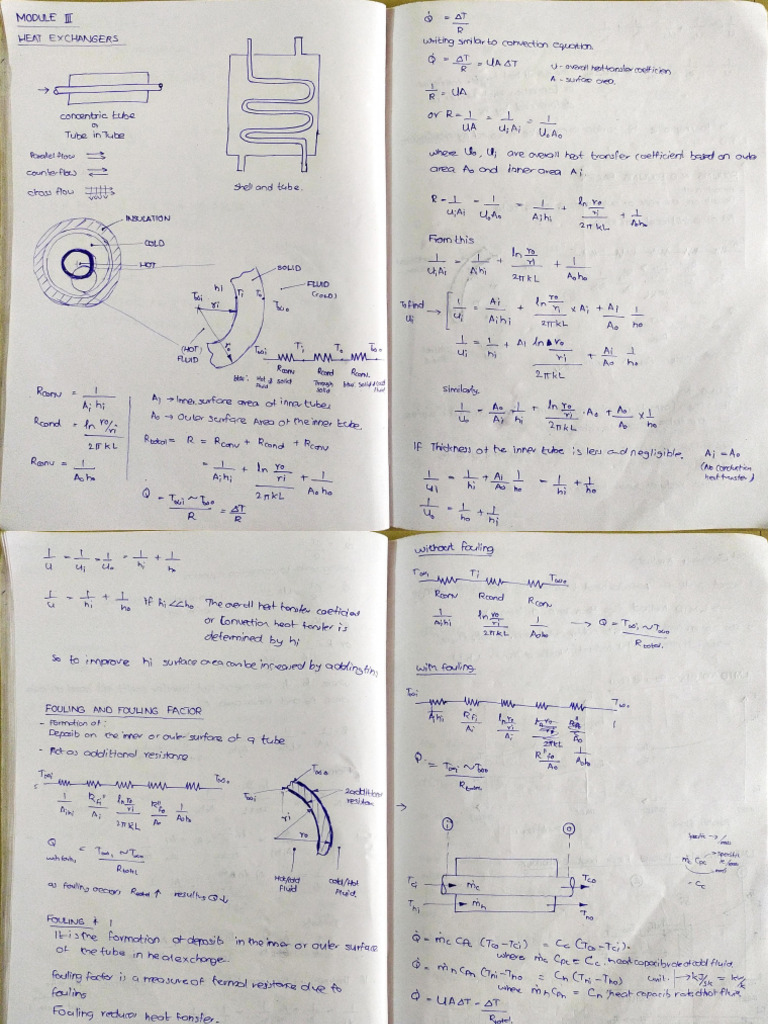 MODULE III
HEAT EXCHANGERS
concentric tube
or
Tube in Tube
Parallel flow
counterflow
cross flow
shell and tube.
INSULATION
COLD
HOT
SOLID
FLUID
(COLD)
hi
T∞i
ri
Ti
To
T∞o
ro
(HOT)
FLUID
T∞i Ti To T∞o
Rconv Rcond Rconv
Through solid
Rconv = 1/Aihi
Rcond = ln ro/ri / 2πKL
Rconv = 1/Aoho
Ai → Inner surface area of inner tubes
Ao → Outer surface Area of the inner tube.
Rtotal = R = Rconv + Rcond + Rconv
= 1/Aihi + ln ro/ri / 2πKL + 1/Aoho
Q = T∞i ~ T∞o / R = ΔT/R
Q̇ = ΔT/R
writing similar to convection equation.
Q̇ = ΔT/R = UAΔT
U - overall heat transfer coefficien
A - surface area.
1/R = UA
or R = 1/UA = 1/UiAi = 1/UoAo
where Uo, Ui are overall heat transfer coefficient based on outer
area Ao and inner area Ai.
R = 1/UiAi = 1/UoAo = 1/Aihi + ln ro/ri / 2πKL + 1/Aoho
From this
1/UiAi = 1/Aihi + ln ro/ri / 2πKL + 1/Aoho
To find Ui → [ 1/Ui = Ai/Aihi + ln ro/ri / 2πKL × Ai + Ai/Ao 1/ho
1/Ui = 1/hi + Ai ln ro/ri / 2πKL + Ai/Ao 1/ho
Similarly,
1/Uo = Ao/Ai 1/hi + ln ro/ri / 2πKL . Ao + Ao/Ao × 1/ho
If Thickness of the inner tube is less and negligible. Ai = Ao
(No conduction
heat transfer)
1/Ui = 1/hi + Ai/Ao 1/ho = 1/hi + 1/ho
1/Uo = 1/ho + 1/hi
1/U = 1/Ui = 1/Uo = 1/hi + 1/ho
1/U = 1/hi + 1/ho If hi<<ho The overall heat transfer coeficien
or Convection heat tansfer is
determined by hi
So to improve hi surface area can be increased by adding fins
FOULING AND FOULING FACTOR
- Formation of:
Deposits on the inner or outer surface of a tube
- Act as additional resistance
T∞i T∞o
1/Aihi R"fi/Ai ln ro/ri / 2πKL R"fo/Ao 1/Aoho
Q = T∞i ~ T∞o / Rtotal
with fouling
as fouling occurs Rtotal ↑ results Q↓
T∞o
T∞i
2 additional
resistan
ri
ro
Hot/cold
fluid
cold/Hot
Fluid.
FOULING
It is the formation of deposits in the inner or outer surface
of the tube in heat exchange.
Fouling factor is a measure of termal resistance due to
fouling
Foaling reducer heat tansfer.
without fouling
T∞i Ti T∞o
Rconv Rcond Rconv
1/Aihi ln ro/ri / 2πKL 1/Aoho → Q = T∞i ~ T∞o / Rtotal.
with fouling
T∞i T∞o
1/Aihi R"fi/Ai R"fo/Ao 1/Aoho
Q = T∞i ~ T∞o / Rtotal
i
o
Tci ṁc Tco
Thi ṁh Tho
ṁc Cpc
= Cc
Q̇ = ṁc Cpc (Tco - Tci) = Cc (Tco - Tci).
where ṁc Cpc = Cc. heat capacity rate of cold fluid.
Q̇ = ṁh Cph (Thi - Tho = Ch (Thi - Tho)
where ṁh Cph = Ch heat capacity rate of hot fluid.
Q̇ = UAΔT = ΔT/Rtotal